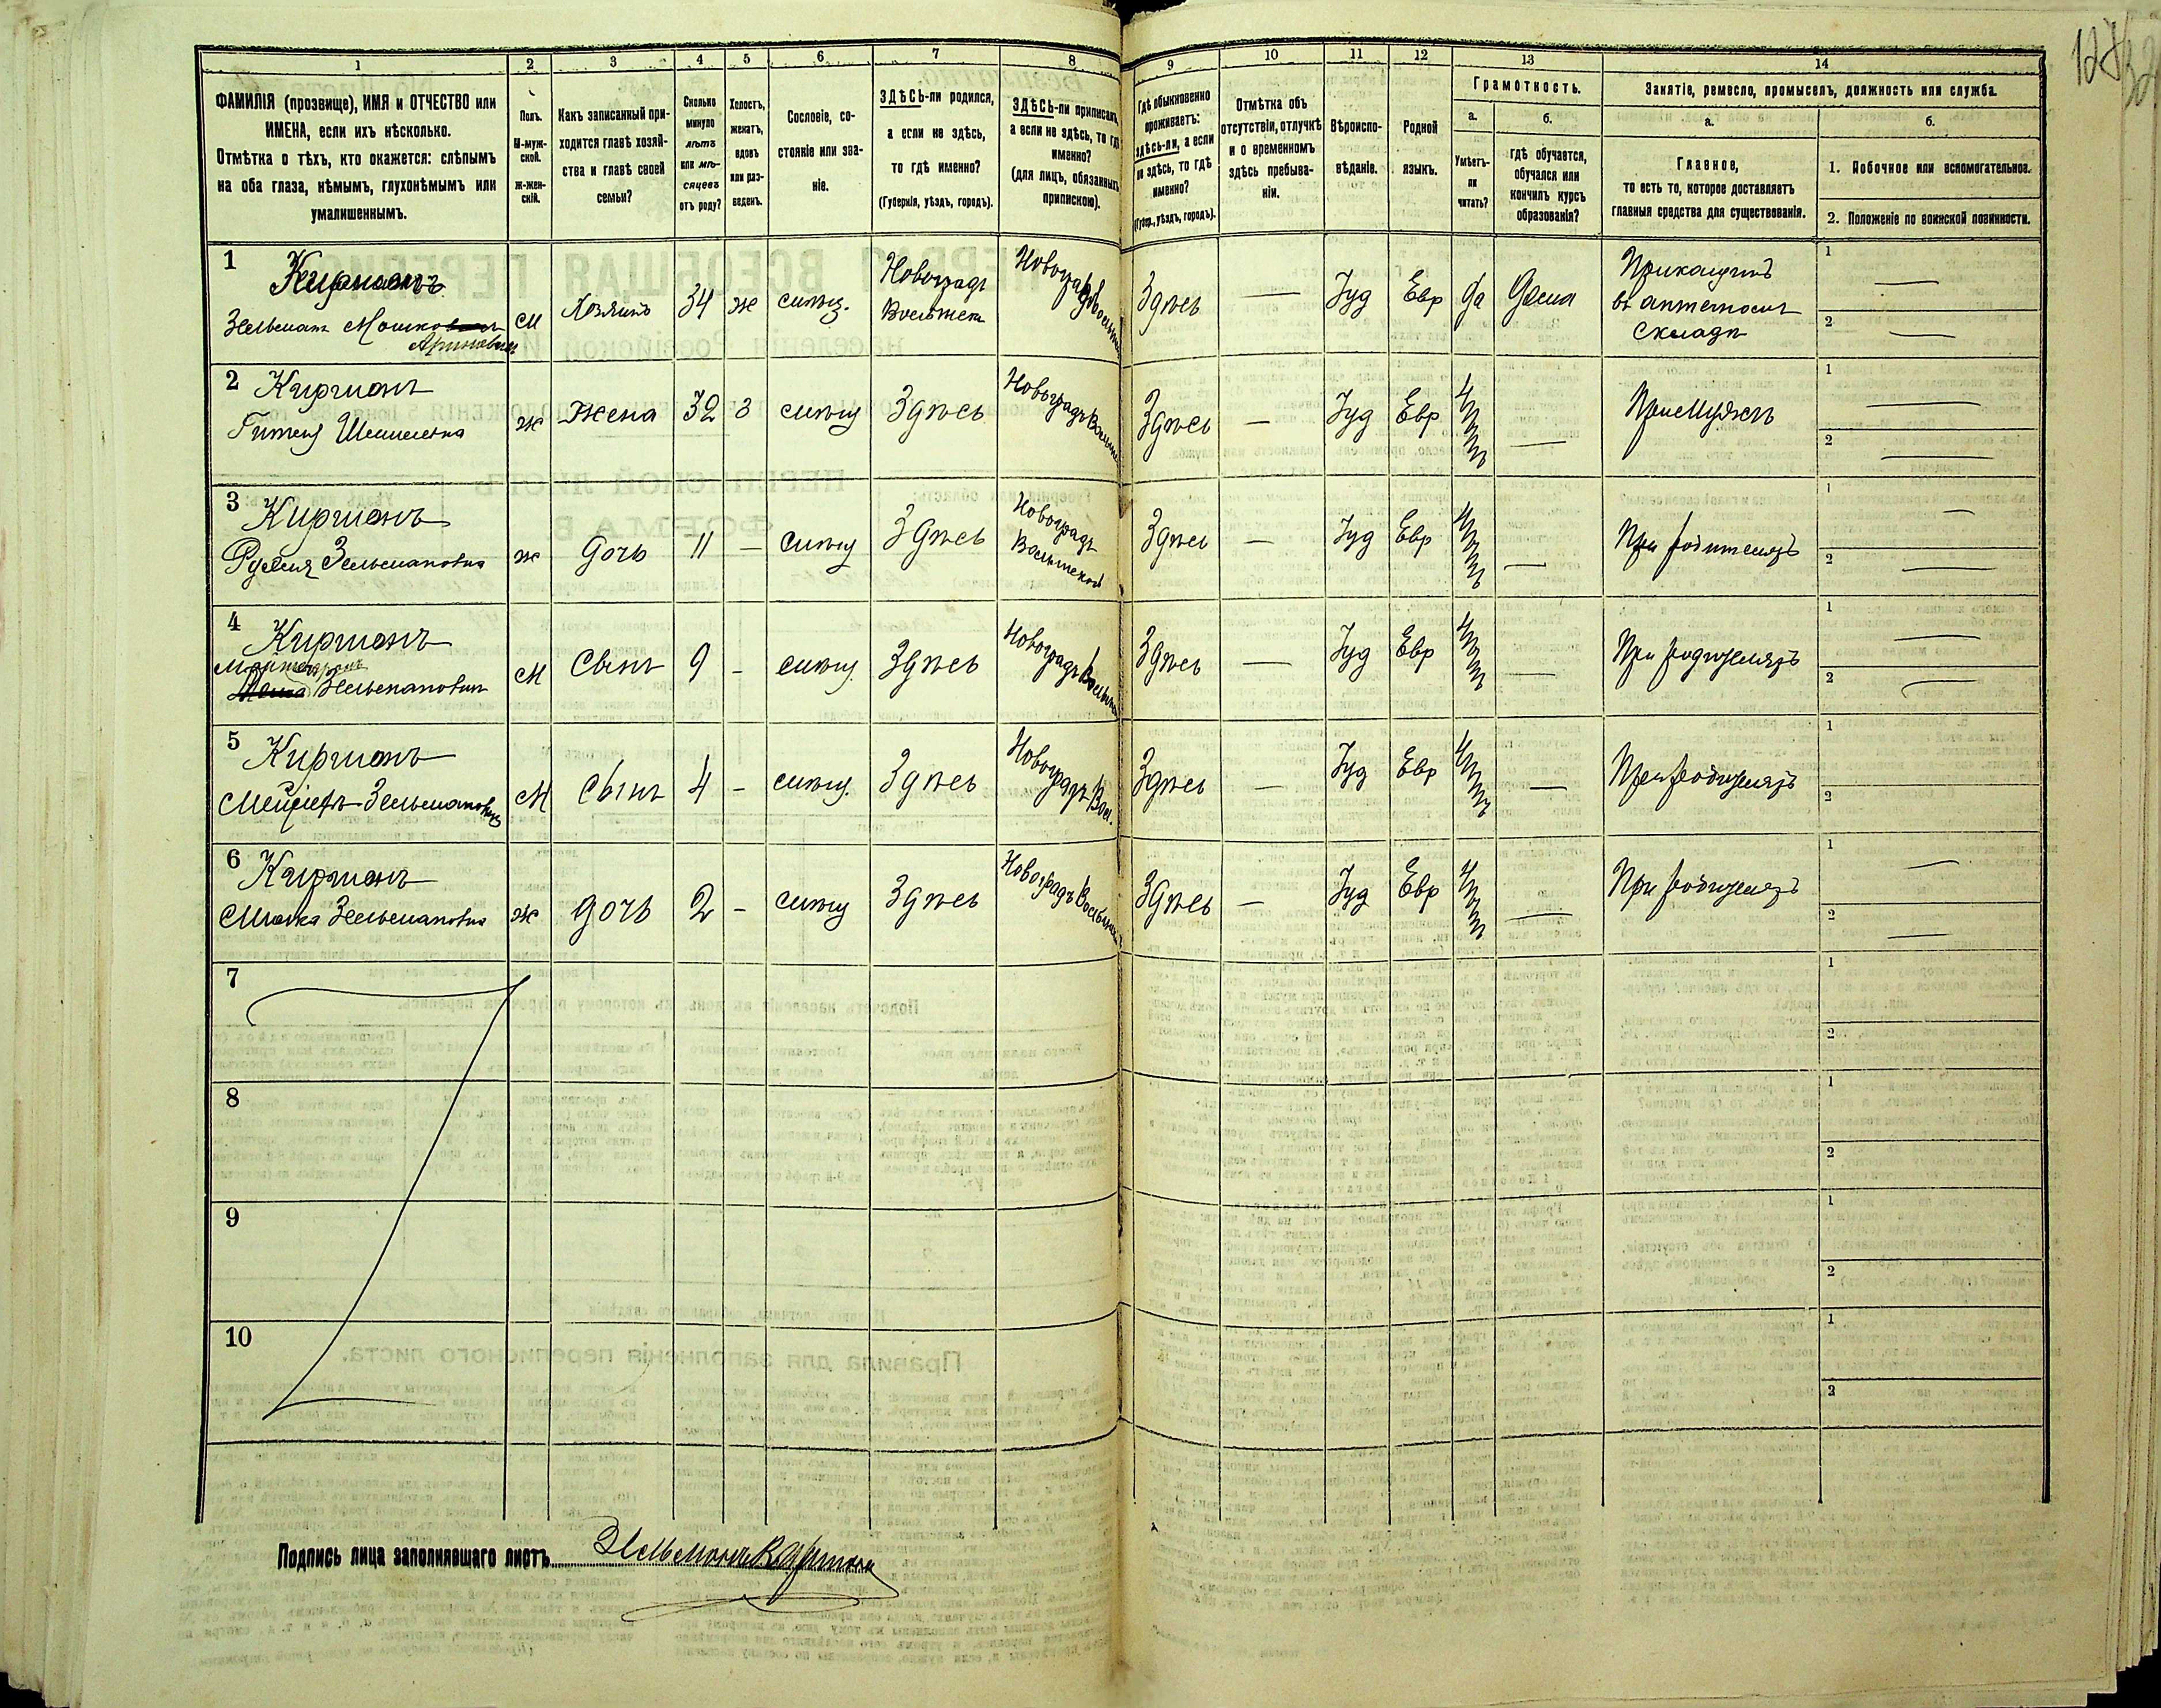 128
32
1 2 3 4 5 6 7 8 9 10 11 12 13 14
ФАМИЛІЯ (прозвище), ИМЯ и ОТЧЕСТВО или
ИМЕНА, если ихъ нѣсколько.
Отмѣтка о тѣхъ, кто окажется: слѣпымъ
на оба глаза, нѣмымъ, глухонѣмымъ или
умалишеннымъ.
Полъ.
М-муж-
ской.
ж-жен-
скій.
Какъ записанный при-
ходится главѣ хозяй-
ства и главѣ своей
семьи?
Сколько
минуло
лѣтъ
или мѣ-
сяцевъ
отъ роду?
Холостъ,
женатъ,
вдовъ
или раз-
веденъ.
Сословіе, со-
стояніе или зва-
ніе.
ЗДѢСЬ-ли родился,
а если не здѣсь,
то гдѣ именно?
(Губернія, уѣздъ, городъ).
ЗДѢСЬ-ли приписанъ,
а если не здѣсь, то гдѣ
именно?
(для лицъ, обязанныхъ
припискою).
Гдѣ обыкновенно
проживаетъ:
здѣсь-ли, а если
не здѣсь, то гдѣ
именно?
(Губер., уѣздъ, городъ).
Отмѣтка объ
отсутствіи, отлучкѣ
и о временномъ
здѣсь пребыва-
ніи.
Вѣроиспо-
вѣданіе.
Родной
языкъ.
Грамотность.
а.
Умѣетъ-
ли
читать?
б.
гдѣ обучается,
обучался или
кончилъ курсъ
образованія?
Занятіе, ремесло, промыселъ, должность или служба.
а.
Главное,
то есть то, которое доставляетъ
главныя средства для существованія.
б.
1. Побочное или вспомогательное.
2. Положеніе по воинской повинности.
1 Киржнанъ
Зельманъ Мошко
М Хозяинъ 34 ж мѣщ. Новоградъ
Волынск Новоградъ Волынск Здѣсь — Іуд Евр да Дома Прикащикъ
въ аптечномъ
складѣ
1 —
2 —
2 Киржнанъ
ж Жена 32 з мѣщ Здѣсь Новоградъ Волынс Здѣсь — Іуд Евр нѣтъ — При мужѣ
1 —
2 —
3 Киржнанъ
Зельмановна
ж Дочь 11 — мѣщ Здѣсь Новоградъ
Волынской Здѣсь — Іуд Евр нѣтъ — При родителяхъ
1 —
2 —
4 Киржнанъ
Зельмановичъ
М Сынъ 9 - мѣщ. Здѣсь Новоградъ Волынск Здѣсь — Іуд Евр нѣтъ — При родителяхъ
1 —
2 —
5 Киржнанъ
Зельмановичъ
М Сынъ 4 - мѣщ. Здѣсь Новоградъ Вол. Здѣсь — Іуд Евр нѣтъ — При родителяхъ
1
2
6 Киржнанъ
Зельмановна
ж дочь 2 - мѣщ Здѣсь Новоградъ Волынск Здѣсь — Іуд Евр нѣтъ — При родителяхъ
1 —
2 —
7
1
2
8
1
2
9
1
2
10
1
2
Подпись лица заполнявшаго листъ Зельманъ